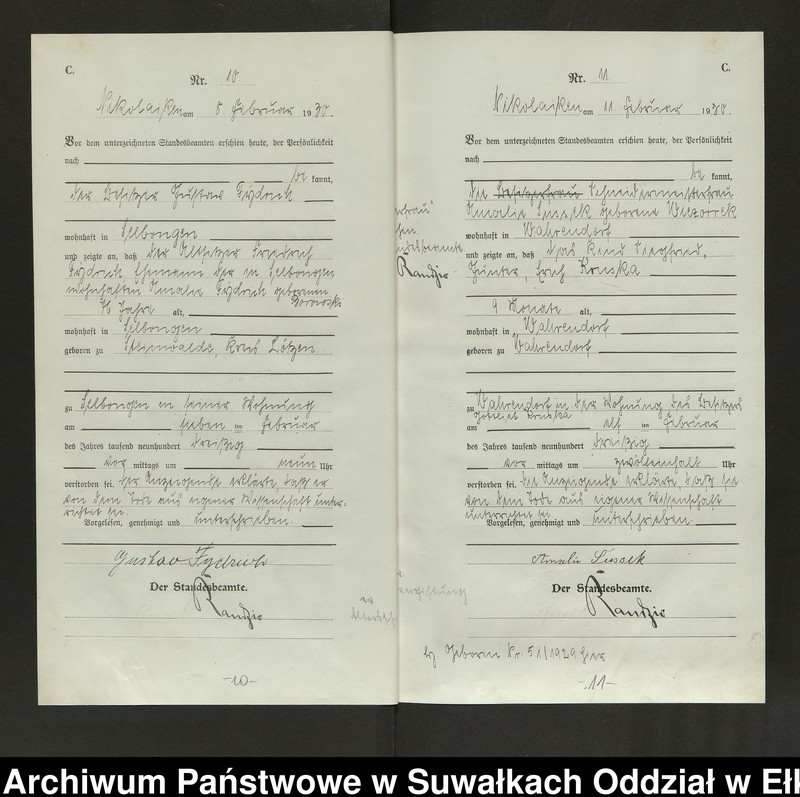 C.
Nr. 10
Nikolaiken am 8. Februar 1930.
Vor dem unterzeichneten Standesbeamten erschien heute, der Persönlichkeit
nach
be kannt,
der Besitzer Gustav Fydrich
wohnhaft in Selbongen
und zeigte an, daß der Altsitzer Friedrich
Fydrich Ehemann der in Selbongen
wohnhaften Amalie Fydrich geborenen
Borowski
76 Jahre alt,
wohnhaft in Selbongen
geboren zu Steinwalde, Kreis Lötzen
zu Selbongen in seiner Wohnung
am sieben ten Februar
des Jahres tausend neunhundert dreißig
vor mittags um neun Uhr
verstorben sei. Der Anzeigende erklärte, daß er
von dem Tode aus eigener Wissenschaft unter-
richtet sei.
Vorgelesen, genehmigt und unterschrieben.
Gustav Fydrich
Der Standesbeamte.
Randzio
-10-
erfrau"
Randzio
C.
Nr. 11
Nikolaiken am 11 Februar 1930.
Vor dem unterzeichneten Standesbeamten erschien heute, der Persönlichkeit
nach
be kannt,
die Besitzerfrau Schneidermeisterfrau
Amalie geborene Wiezorrek
wohnhaft in Wahrendorf
und zeigte an, daß das Kind Siegfried,
Günter, Erich Kruska
9 Monate alt,
wohnhaft in Wahrendorf
geboren zu Wahrendorf
zu Wahrendorf in der Wohnung des Besitzers
Gottlieb Kruska
am elf ten Februar
des Jahres tausend neunhundert dreißig
vor mittags um zwölfeinhalb Uhr
verstorben sei. Die Anzeigende erklärte, daß sie
von dem Tode aus eigener Wissenschaft
unterrichtet sei.
Vorgelesen, genehmigt und unterschrieben.
Amalie
Der Standesbeamte.
Randzio
Geboren Nr. 51/1929 hier
-11-
Archiwum Państwowe w Suwałkach Oddział w Ełk